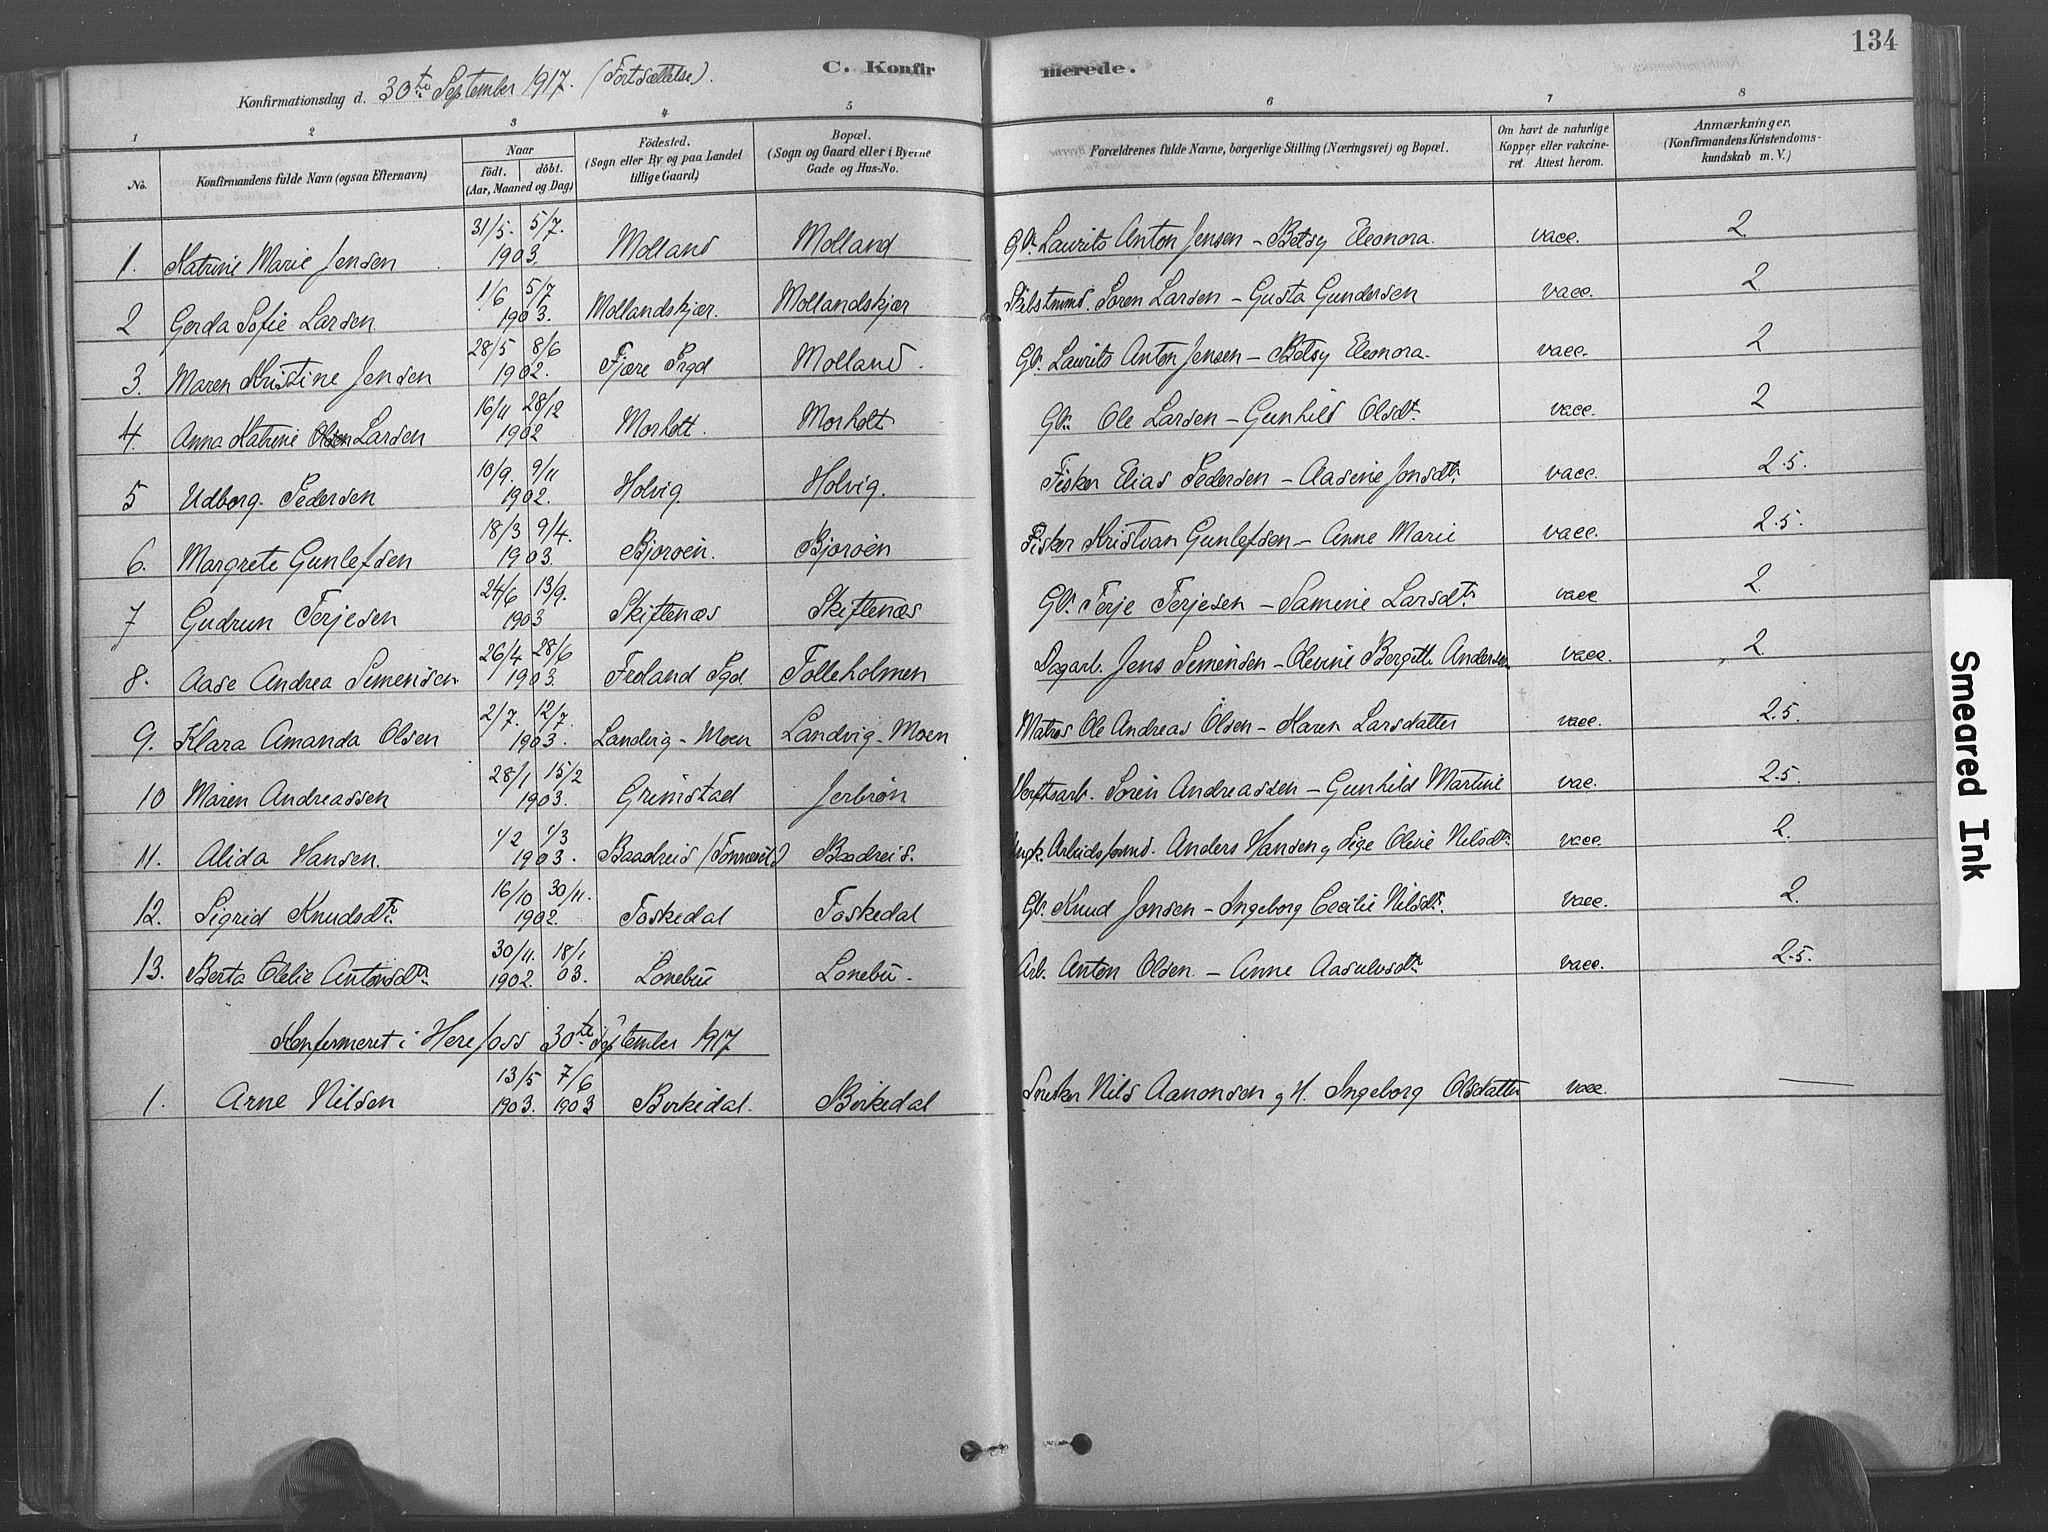 134
C. Konfirmerede.
Konfirmationsdag d. 30te September 1917. (Fortsættelse).
1 2 3 4 5 6 7 8
No. Konfirmandens fulde Navn (ogsaa Efternavn) Naar født. døbt. (Aar, Maaned og Dag) Fødested. (Sogn eller By og paa Landet tillige Gaard) Bopæl. (Sogn og Gaard eller i Byerne Gade og Hus-No. Forældrenes fulde Navne, borgerlige Stilling (Næringsvei) og Bopæl. Om havt de naturlige Kopper eller vakcineret. Attest herom. Anmærkninger. (Konfirmandens Kristendomskundskab m. V.)
1. Katrine Marie Jensen 31/5. 5/7. 1903. Molland Molland Gbr. Laurits Anton Jensen - Betsy Eleonora. vacc. 2.
2 Gerda Sofie Larsen 1/6 5/7 1903. Mollandskjær. Mollandskjær Søren Larsen - Gusta Gundersen vacc. 2
3. Maren Kristine Jensen 28/5 8/6 1902. Fjære Prgd Molland. Gbr. Laurits Anton Jensen - Betsy Eleonora. vacc. 2
4. Anna Katrine Larsen 16/11 28/12 1902 Morholt. Morholt Gbr. Ole Larsen - Gunhild Olsdtr vacc. 2
5 Udborg. Pedersen 10/9. 9/11 1902. Holvig Holvig. Fisker Elias Pedersen - Aasine Jonsdtr. vacc. 2.5.
6. Margrete Gunlefsen 18/3 9/4. 1903. Bjorøen. Bjorøen Fisker Kristian Gunlefsen - Anne Marie vacc. 2.5.
7 Gudrun Terjesen 24/6 13/9. 1903 Skiftenæs Skiftenæs Gbr. Terje Terjesen - Samine Larsdtr. vacc 2.
8. Aase Andrea Simensen 26/4 28/6 1903. Froland Sgd Tolleholmen Dagarb. Jens Simensen - Olevine Bergitte Andersen vacc. 2
9. Klara Amanda Olsen 2/7. 12/7. 1903. Landvig - Moen Landvig - Moen Matros Ole Andreas Olsen - Karen Larsdatter vacc. 2.5.
10 Maren Andreassen 28/1 15/2 1903. Grimstad Jerbrøn Verftsarb. Søren Andreassen - Gunhild Martine vac. 2.5.
11. Alida Hansen. 1/2 1/3 1903. Baadreis Baadreis. Arbeidsformd. Anders Hansen og Pige Oline Nilsdtr. vacc. 2.
12. Sigrid Knudsdtr. 16/10 30/11. 1902. Foskedal Foskedal Gbr. Knud Jensen - Ingeborg Cecilie Nilsdtr. vacc. 2.
13. Berta Olelie Antonsdtr 30/11. 18/1 1902. 03. Lonebu Lonebu. Arb. Anton Olsen - Anne Aasulvsdtr vacc. 2.5.
Konfirmeret i Herefoss 30te September 1917
1. Arne Nilsen 13/5 7/6 1903. 1903 Birkedal. Birkedal Snekker Nils Aanonsen og H. Ingeborg Olsdatter vacc. —
Smeared Ink